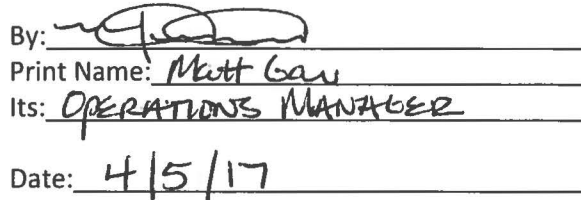 By:
Print Name: Matt
Its: OPERATIONS MANAGER
Date: 4/5/17